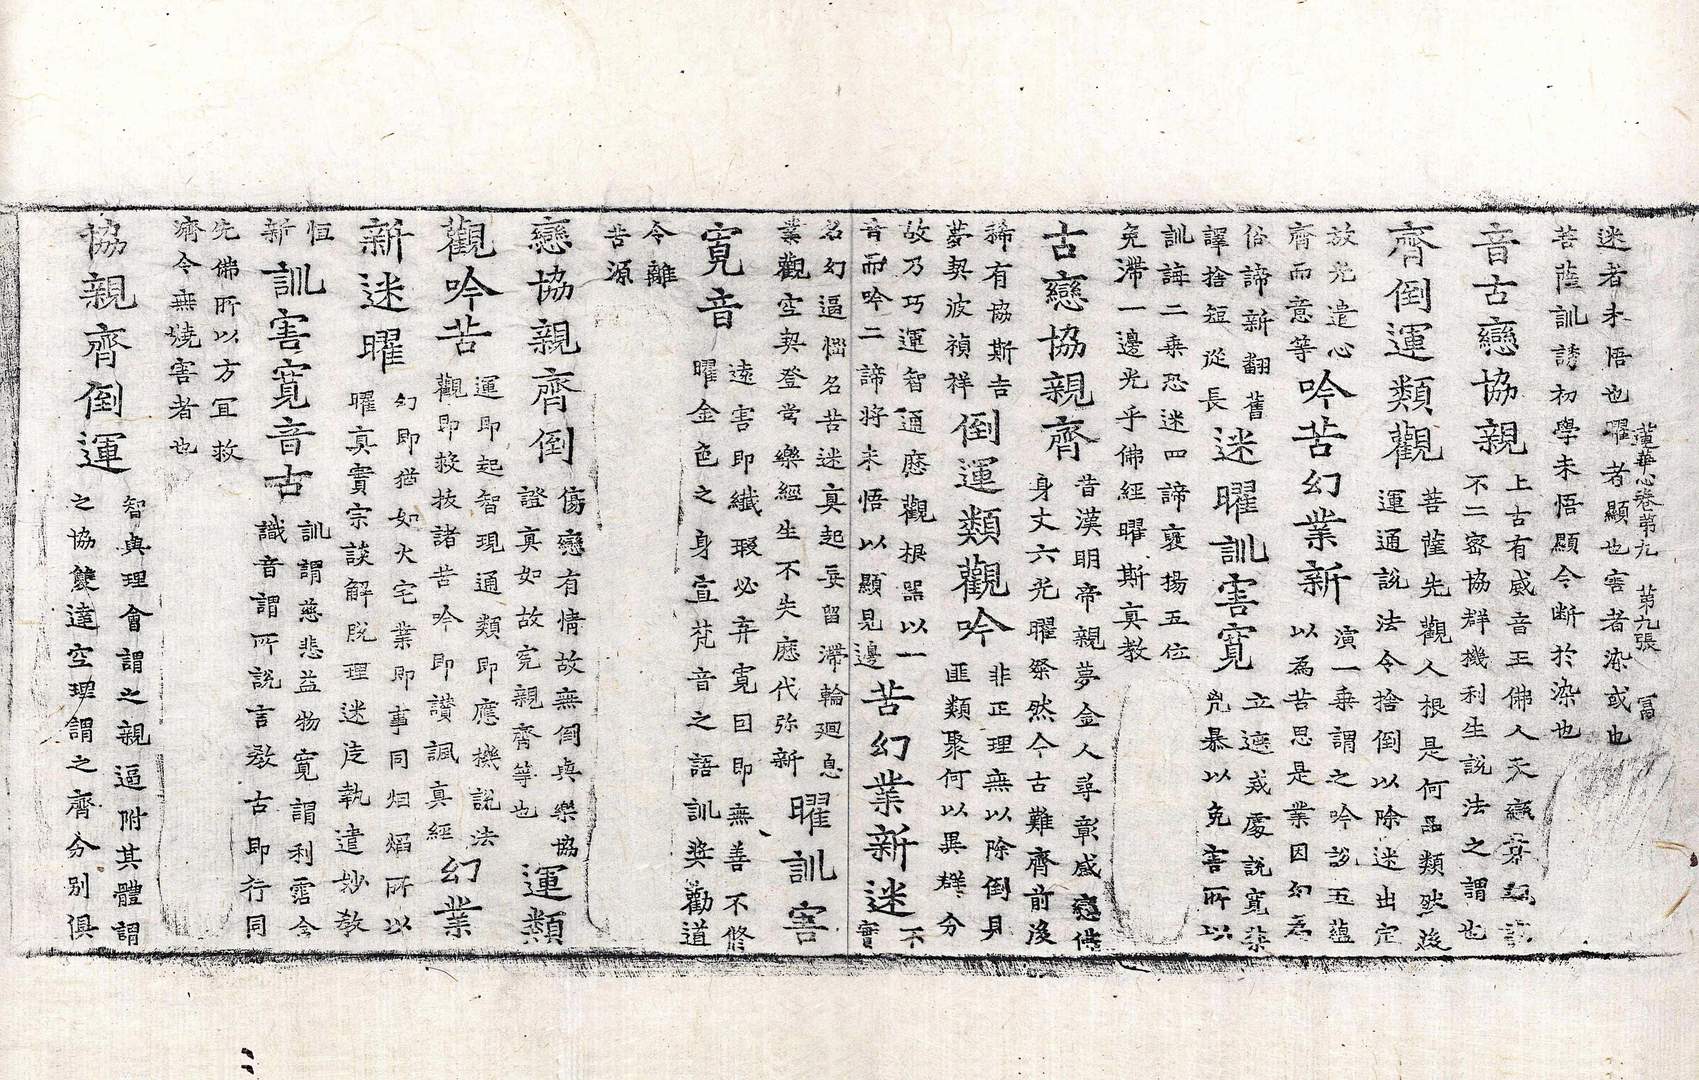 蓮華心卷第九　第九張　冨
迷者未悟也曜者顯也害者染或也
菩薩訓誘初學未悟顯令断於染也
音古戀協親
上古有威音王佛人天戀慕親
不二密協群機利生説法之謂也
齊倒運類觀
菩薩先觀人根是何品類然後
運通説法令捨倒以除迷出定
故先遣心
齊而意等
吟苦幻業新
演一乘謂之吟説五蘊
以為苦思是業因幻為
俗諦新翻舊
譯捨短從長
迷曜訓害寬
立遮戒處説寬慈
暴以免害所以
訓誨二乘恐迷四諦褒揚五位
免滯一邊光乎佛經曜斯真教
古戀協親齊
昔漢明帝親夢金人尋彰感戀供
身丈六光曜祭然今古難齊前後
稀有協斯吉
夢契彼禎祥
倒運類觀吟
非正理無以除倒具
匪類聚何以異群分
故乃巧運智通應觀根器以一
音而吟二諦將未悟以顯見邊
苦幻業新迷
不
實
名幻逼惱名苦迷真起妄留滯輪廻息
業觀空契登常樂經生不失應代弥新
曜訓害
寬音
遠害即纖瑕必弃寬曰即無善不修
曜金色之身宣梵音之語訓奨勸道
令離
苦源
戀協親齊倒
傷戀有情故無倒與樂協
證真如故究親齊等也
運類
觀吟苦
運即起智現通類即應機説法
觀即救拔諸苦吟即讃諷真經
幻業
新迷曜
幻即猶如火宅業即事同烟焰所以
曜真實宗談解脱理迷虔執遣妙教
恒
新
訓害寬音古
訓謂慈悲益物寬謂利霑含
識音謂所説言教古即行同
先佛所以方冝救
濟令無燒害者也
協親齊倒運
智與理會謂之親逼附其體謂
之協雙達空理謂之齊分別俱